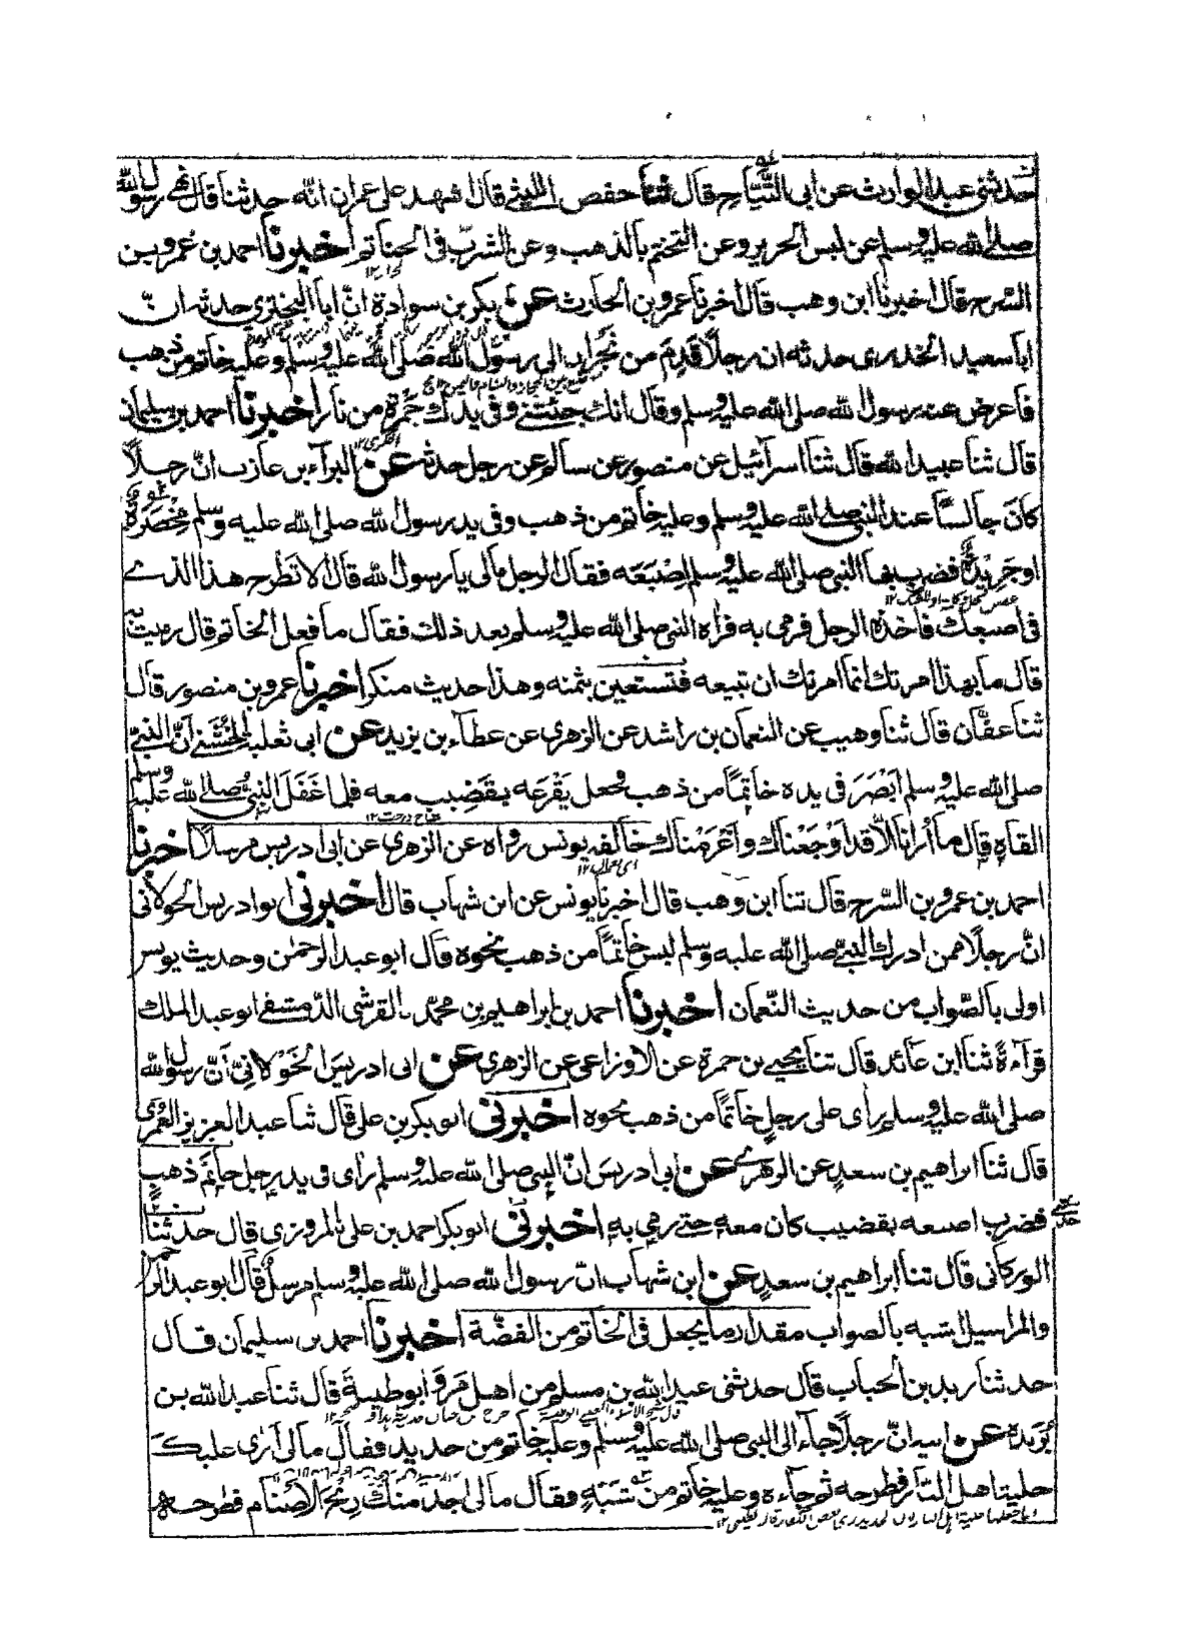 حدثنی عبدالوارث عن ابی التَّیَّاح قال ثنا حفص اللیثے قال اشهد علی عمران انه حدثنا قال نهی رسول الله
صلی الله علیه وسلم عن لبس الحریر وعن التختم بالذهب وعن الشرب فی الحناتم اخبرنا احمد بن عمرو بن
السرح قال اخبرنا ابن وهب قال اخبرنا عمرو بن الحارث عن بکر بن سوادة انّ ابا البختری حدثه انّ
ابا سعید الخدری حدثه ان رجلًا قَدِمَ من نجران الی رسول الله صلی الله علیه وسلم وعلیه خاتم من ذهب
فاعرض عنه رسول الله صلی الله علیه وسلم وقال انك جئتنے وفی یدك جَمْرَة من نار اخبرنا احمد بن سلیمان
قال ثنا عبیدالله قال ثنا اسرآئیل عن منصور عن سالم عن رجل حدثه عن البرآء بن عازب انّ رجلًا
کانَ جالسًا عند النبی صلی الله علیه وسلم وعلیه خاتم من ذهب وفی ید رسول الله صلی الله علیه وسلم مِخْصَرَة
او جَرِیْدَة فضرب بها النبی صلی الله علیه وسلم اِصْبَعَه فقال الرجل مالی یا رسول الله قال الا تَطْرح هذا الذے
فی اصبعك فاخذه الرجل فرمی به فراٰه النبی صلی الله علیه وسلم بعد ذلك فقال ما فعل الخاتم قال رمیت به
قال ما بهذا امرتك انما امرتك ان تبیعه فتستعین بثمنه وهذا حدیث منکر اخبرنا عمرو بن منصور قال
ثنا عفّان قال ثنا وهیب عن النعمان بن راشد عن الزهری عن عطآء بن یزید عن ابی ثعلبة الخُشَنی اَنّ النبیّ
صلی الله علیه وسلم اَبْصَرَ فی یده خاتمًا من ذهب فجعل یَقْرَعه بقَضِیب معه فلما غَفَلَ النبیُّ صلی الله علیه وسلم
القاه قال ما اُرانا الّا قد اَوجَعْناك واَغْرَمْناك خالفه یونس رواه عن الزهری عن ابی ادریس مرسلًا اخبرنا
احمد بن عمرو بن السّرح قال ثنا ابن وهب قال اخبرنا یونس عن ابن شهاب قال اخبرنی ابو ادریس الخولانی
انّ رجلًا ممن ادرك النبیّ صلی الله علیه وسلم لبس خاتمًا من ذهب نحوه قال ابو عبد الرحمٰن وحدیث یونس
اولی بالصّواب من حدیث النّعمان اخبرنا احمد بن ابراهیم بن محمّد القرشی الدّمشقی ابو عبد الملك
قرآءةً ثنا ابن عائذ قال ثنا یحیے بن حمزة عن الاوزاعی عن الزهری عن ابی ادریسَ الخَوْلانیِّ اَنّ رسول الله
صلی الله علیه وسلم راٰی علی رجلٍ خاتمًا من ذهب نحوه اخبرنی ابو بکر بن علی قال ثنا عبد العزیز العُمَری
قال ثنا ابراهیم بن سعدٍ عن الزهرے عن ابی ادریسَ انّ النبی صلی الله علیه وسلم راٰی فی ید رجل خاتمَ ذهبٍ
فضرب اصبعه بقضیب کان معه حتے رمی به اخبرنی ابو بکر احمد بن علی المروزی قال حدثنا
الورکانی قال ثنا ابراهیم بن سعدٍ عن ابن شهاب انّ رسول الله صلی الله علیه وسلم مرسلٌ قال ابو عبد الرحمن
والمراسیل اشبه بالصواب مقدار ما یجعل فی الخاتم من الفضّة اخبرنا احمد بن سلیمان قال
حدثنا زید بن الحباب قال حدثنی عبدالله بن مسلم من اهل مَرْوَ ابو طیبةَ قال ثنا عبدالله بن
بُرَیدة عن ابیه انّ رجلًا جآء الی النبی صلی الله علیه وسلم وعلیه خاتم من حدید فقال مالی اَرٰی علیك
حلیة اهل النّار فطرحه ثم جآءه وعلیه خاتم من شَبَهٍ فقال مالی اجد منك رِیْحَ الاَصْنام فطرحه